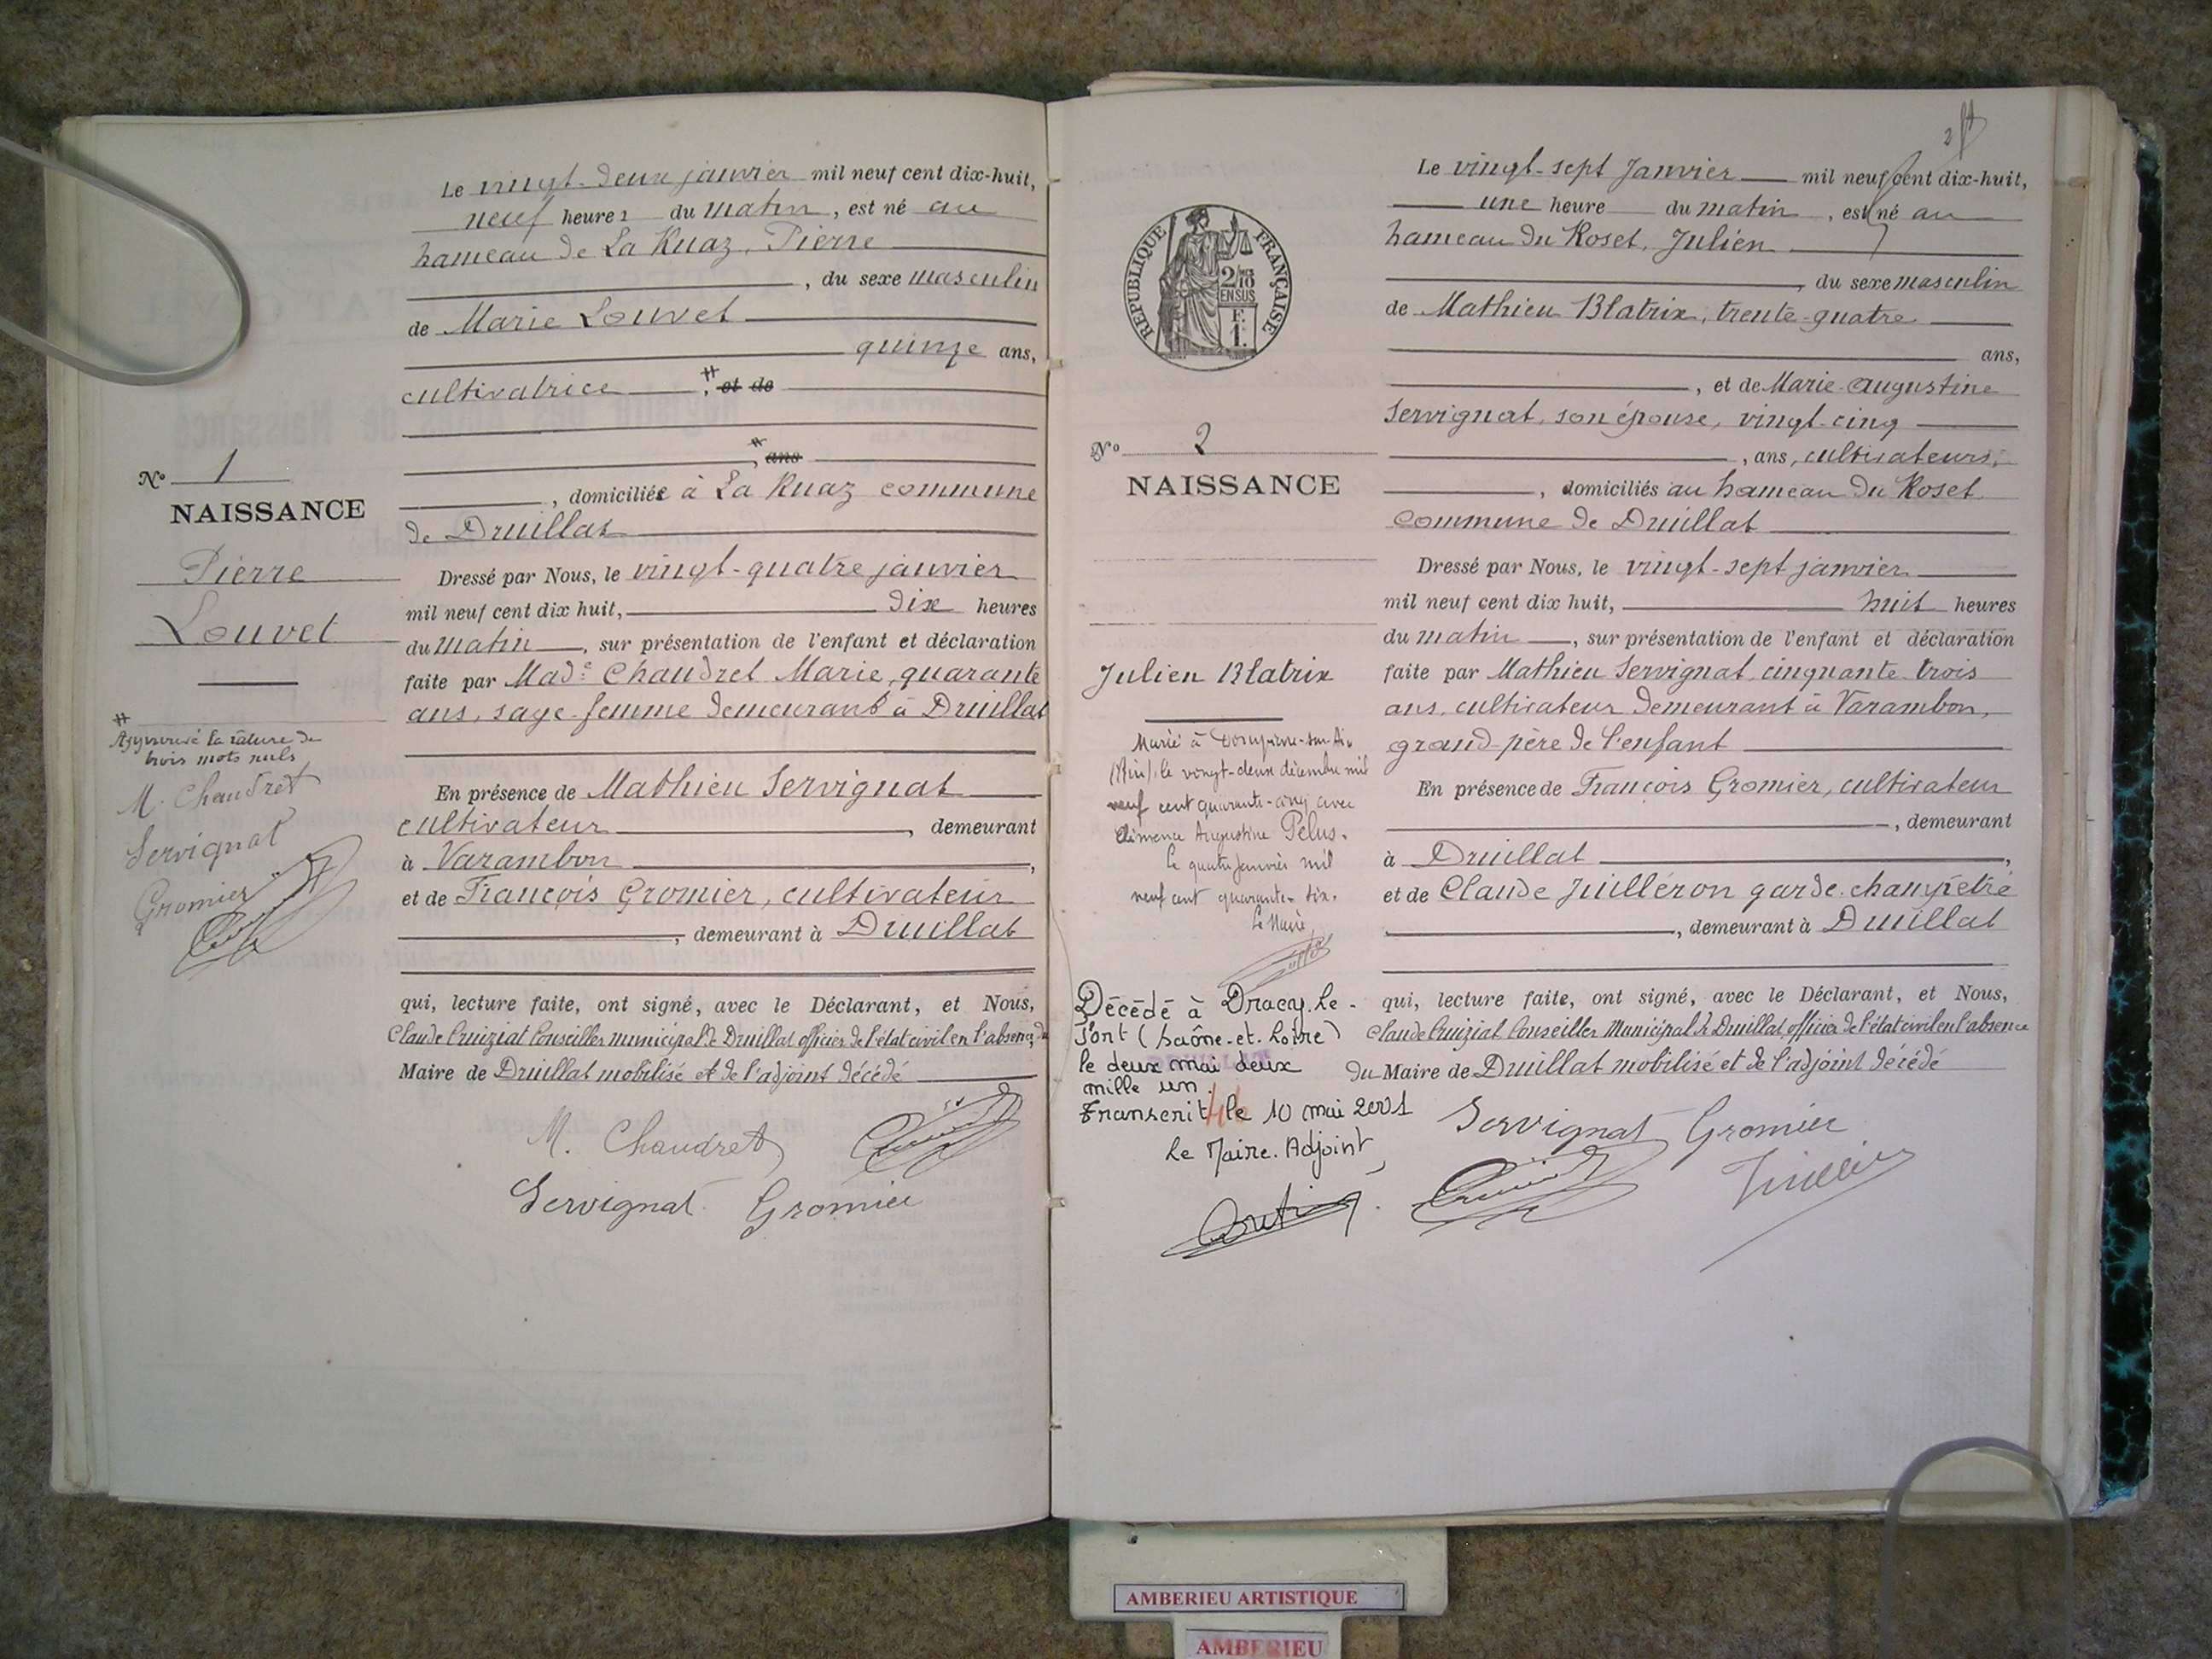 Le vingt-deux janvier mil neuf cent dix-huit,
neuf heures du matin, est né au
hameau de La Ruaz, Pierre
, du sexe masculin
de Marie Louvet
quinze ans,
cultivatrice, # et de
# ans
, domiciliée à La Ruaz commune
de Druillat
Dressé par Nous, le vingt-quatre janvier
mil neuf cent dix huit, dix heures
du matin, sur présentation de l'enfant et déclaration
faite par Made Chaudret Marie, quarante
ans, sage-femme demeurant à Druillat
En présence de Mathieu Servignat
cultivateur, demeurant
à Varambon,
et de François Gromier, cultivateur
, demeurant à Druillat
qui, lecture faite, ont signé, avec le Déclarant, et Nous,
Claude Cruiziat Conseiller municipal de Druillat officier de l'état civil en l'absence du
Maire de Druillat mobilisé et de l'adjoint décédé
M. Chaudret
Servignat Gromier
No 1
NAISSANCE
Pierre
Louvet
# Approuvé la rature de
trois mots nuls
M. Chaudret
Servignat
Gromier
2
Le vingt-sept Janvier mil neuf cent dix-huit,
une heure du matin, est né au
hameau du Roset, Julien
, du sexe masculin
de Mathieu Blatrix, trente-quatre
ans,
, et de Marie-Augustine
Servignat, son épouse, vingt-cinq
, ans, cultivateurs,
, domiciliés au hameau du Roset
commune de Druillat
Dressé par Nous, le vingt-sept janvier
mil neuf cent dix huit, huit heures
du matin, sur présentation de l'enfant et déclaration
faite par Mathieu Servignat, cinquante-trois
ans, cultivateur demeurant à Varambon,
grand-père de l'enfant
En présence de François Gromier, cultivateur
, demeurant
à Druillat,
et de Claude Juilléron garde-champêtre
, demeurant à Druillat
qui, lecture faite, ont signé, avec le Déclarant, et Nous,
Claude Cruiziat Conseiller Municipal de Druillat, officier de l'état civil en l'absence
du Maire de Druillat mobilisé et de l'adjoint décédé
Servignat Gromier
REPUBLIQUE FRANÇAISE
2/10 EN SUS
F. 1.
No 2
NAISSANCE
Julien Blatrix
Marié à Dompierre-sur-Ain
(Ain), le vingt-deux décembre mil
neuf cent quarante-cinq avec
Clémence Augustine Pelus.
Le quatre janvier mil
neuf cent quarante-six.
Le Maire,
Décédé à Dracy-Le-
Fort (Saône-et-Loire)
le deux mai deux
mille un.
Transcrit le 10 mai 2001
Le Maire-Adjoint,
AMBERIEU ARTISTIQUE
AMBERIEU